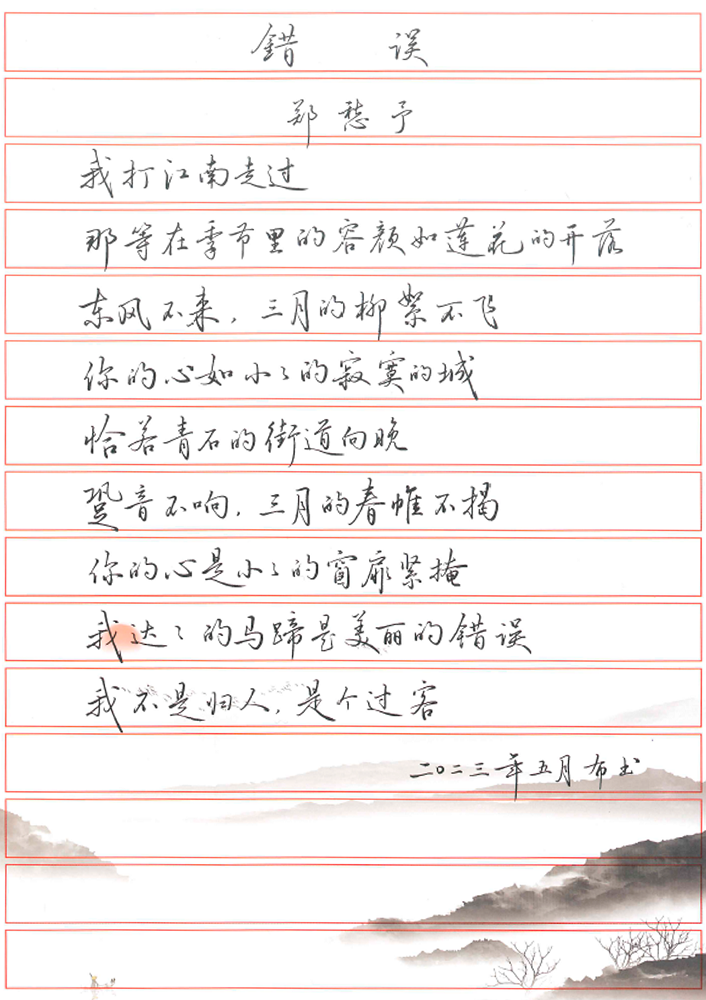 錯 误
郑愁予
我打江南走过
那等在季节里的容颜如莲花的开落
东风不来，三月的柳絮不飞
你的心如小々的寂寞的城
恰若青石的街道向晚
跫音不响，三月的春帷不揭
你的心是小々的窗扉紧掩
我达々的马蹄是美丽的错误
我不是归人，是个过客
二〇二三年五月布书